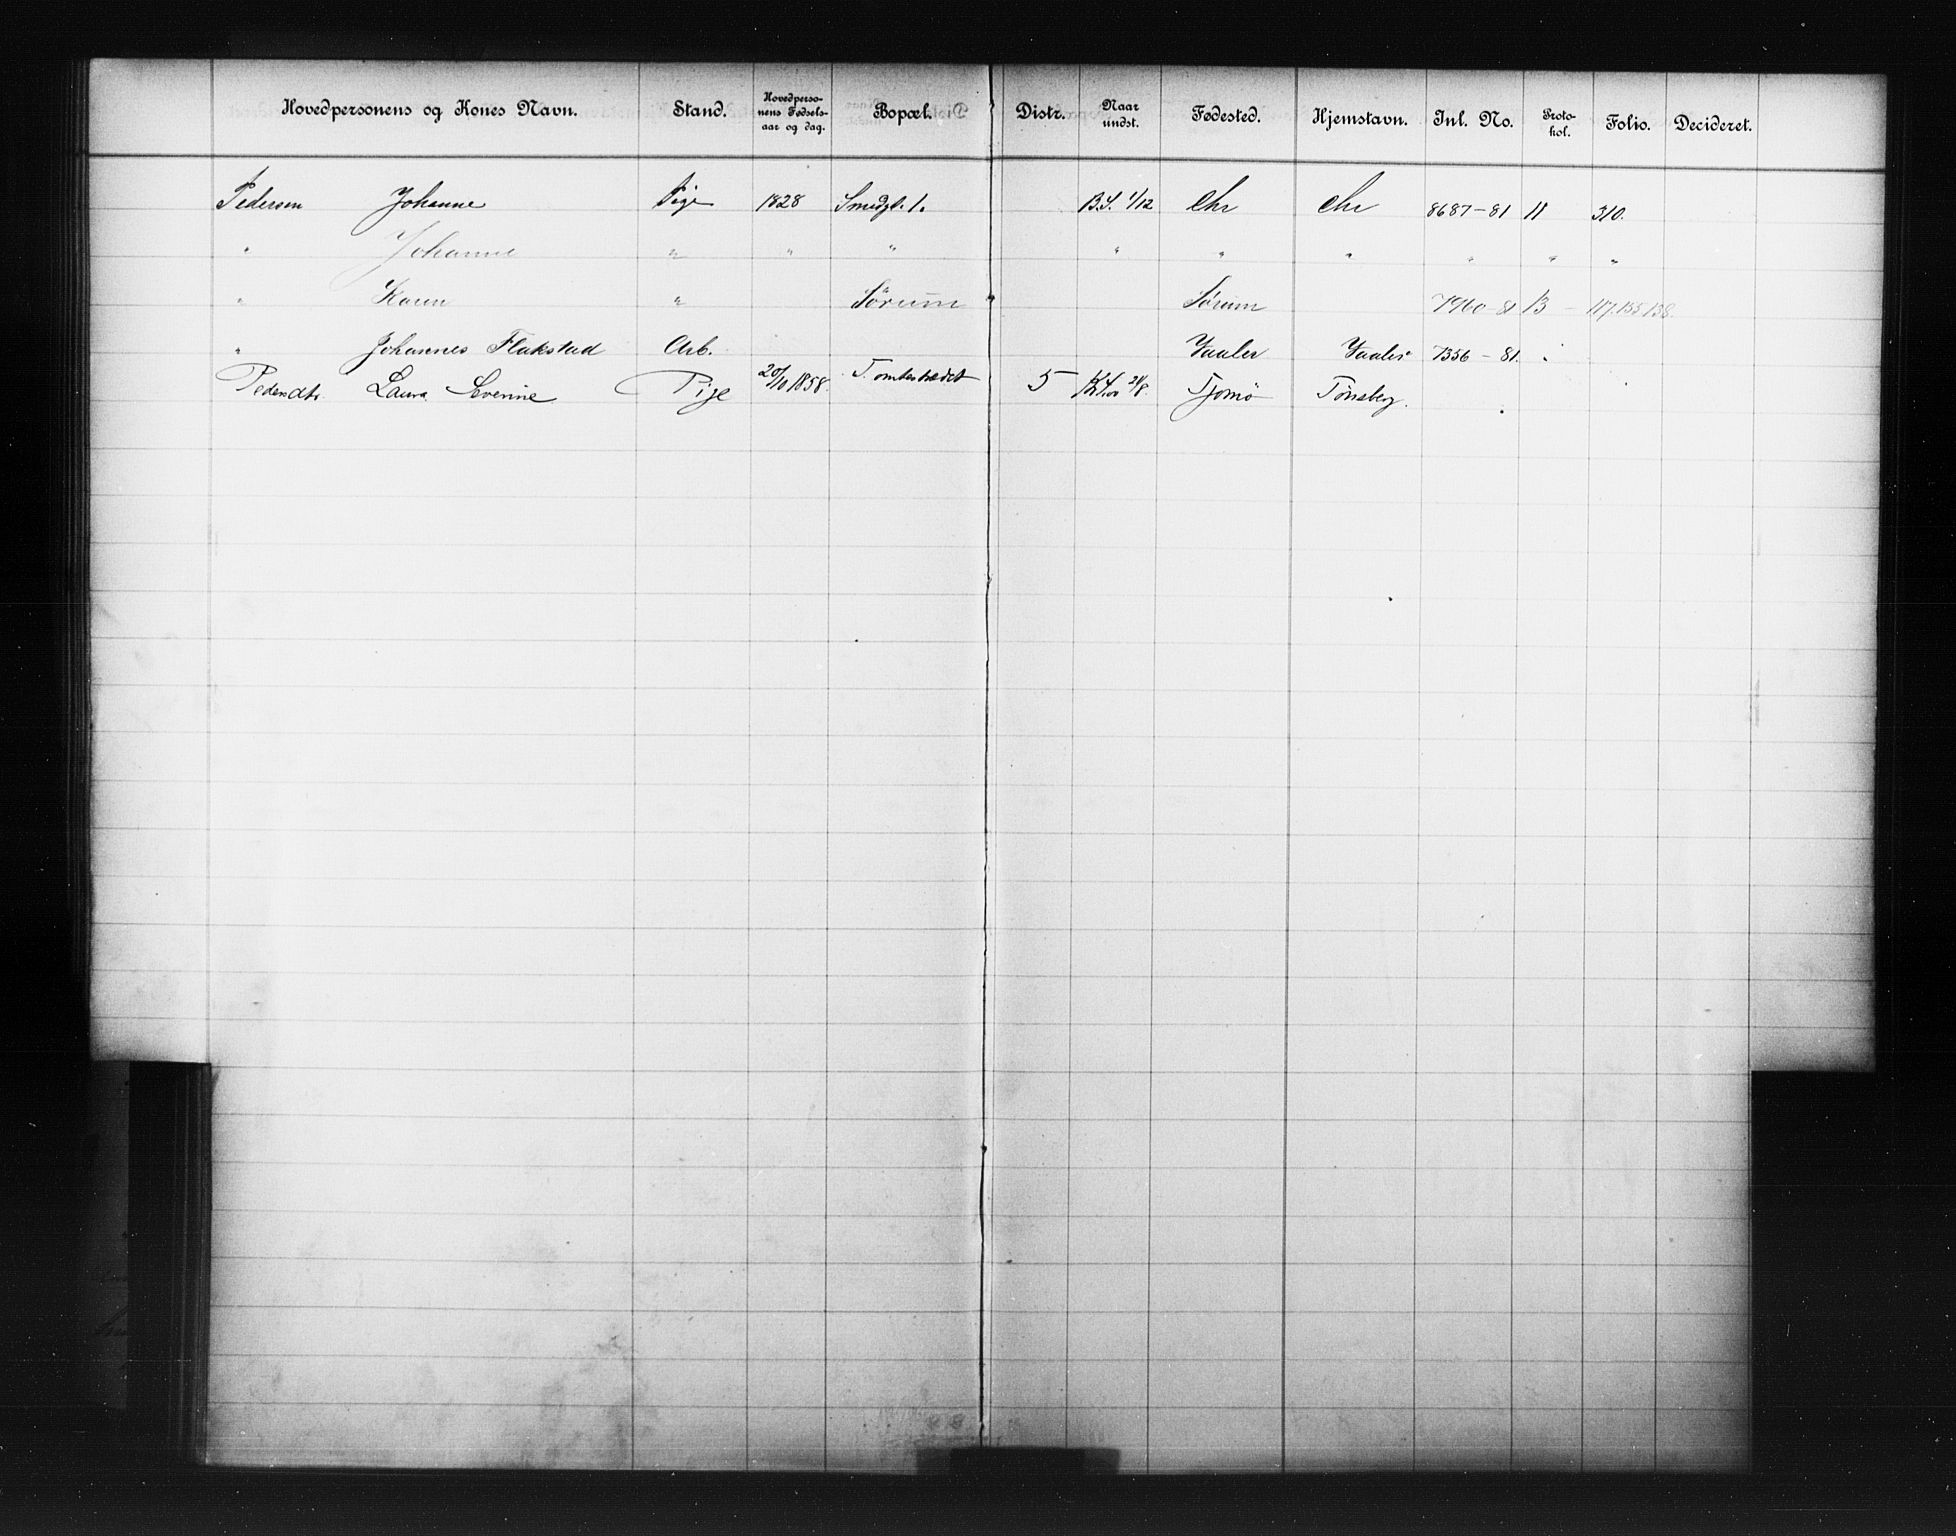 Hovedpersonens og Kones Navn. Stand. Hovedpersonens Fødselsaar og dag. Bopæl. Distr. Naar undst. Fødested. Hjemstavn. Inl. No. Protokol. Folio. Decideret.
Pedersen Johanne Pige 1828 Smedg. 1. B.S. 1/12 Chr Chr 8687-81 11 310.
" Johanne " " " " " " " " "
" Karen " Sørum Sørum 7960-81 13 - 117.155.138.
" Johannes Flakstad Arb. Vaaler Vaaler 7356-81.
Pedersdtr. Laura Severine Pige 20/10 1858 Tomtestrædet 5 Tjømø Tønsberg.